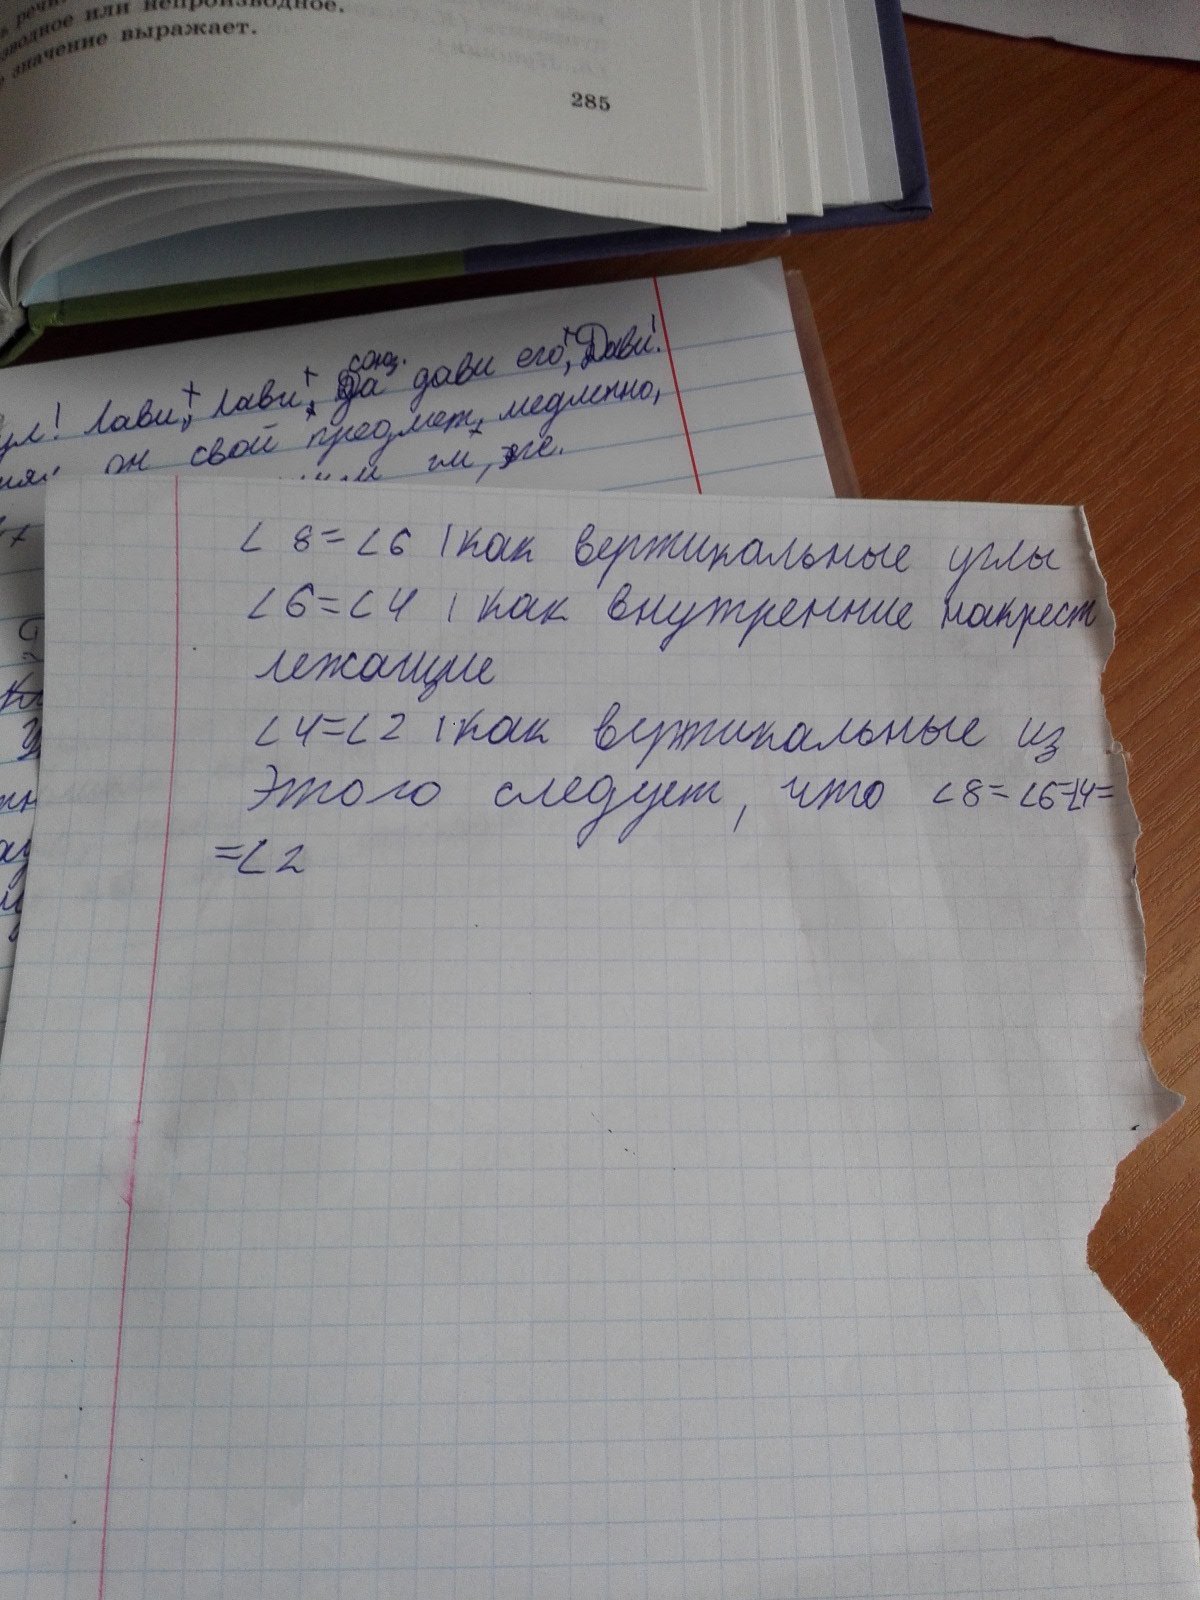 речь.
зводное или непроизводное.
значение выражает.
285
союз.
ул! Лави, Лави, Да дави его, Дави!
он свой предмет, медленно,
∠ 8 = ∠6 | как вертикальные углы
∠6 = ∠4 | как внутренние накрест
лежащие
∠4 = ∠2 | как вертикальные из
этого следует, что ∠8 = ∠6=∠4=
=∠2